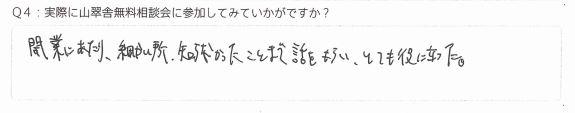 Q4：実際に山翠舎無料相談会に参加してみていかがですか？
開業にあたり、細かい所、知らなかったことまで話をもらい、とても役に立った。